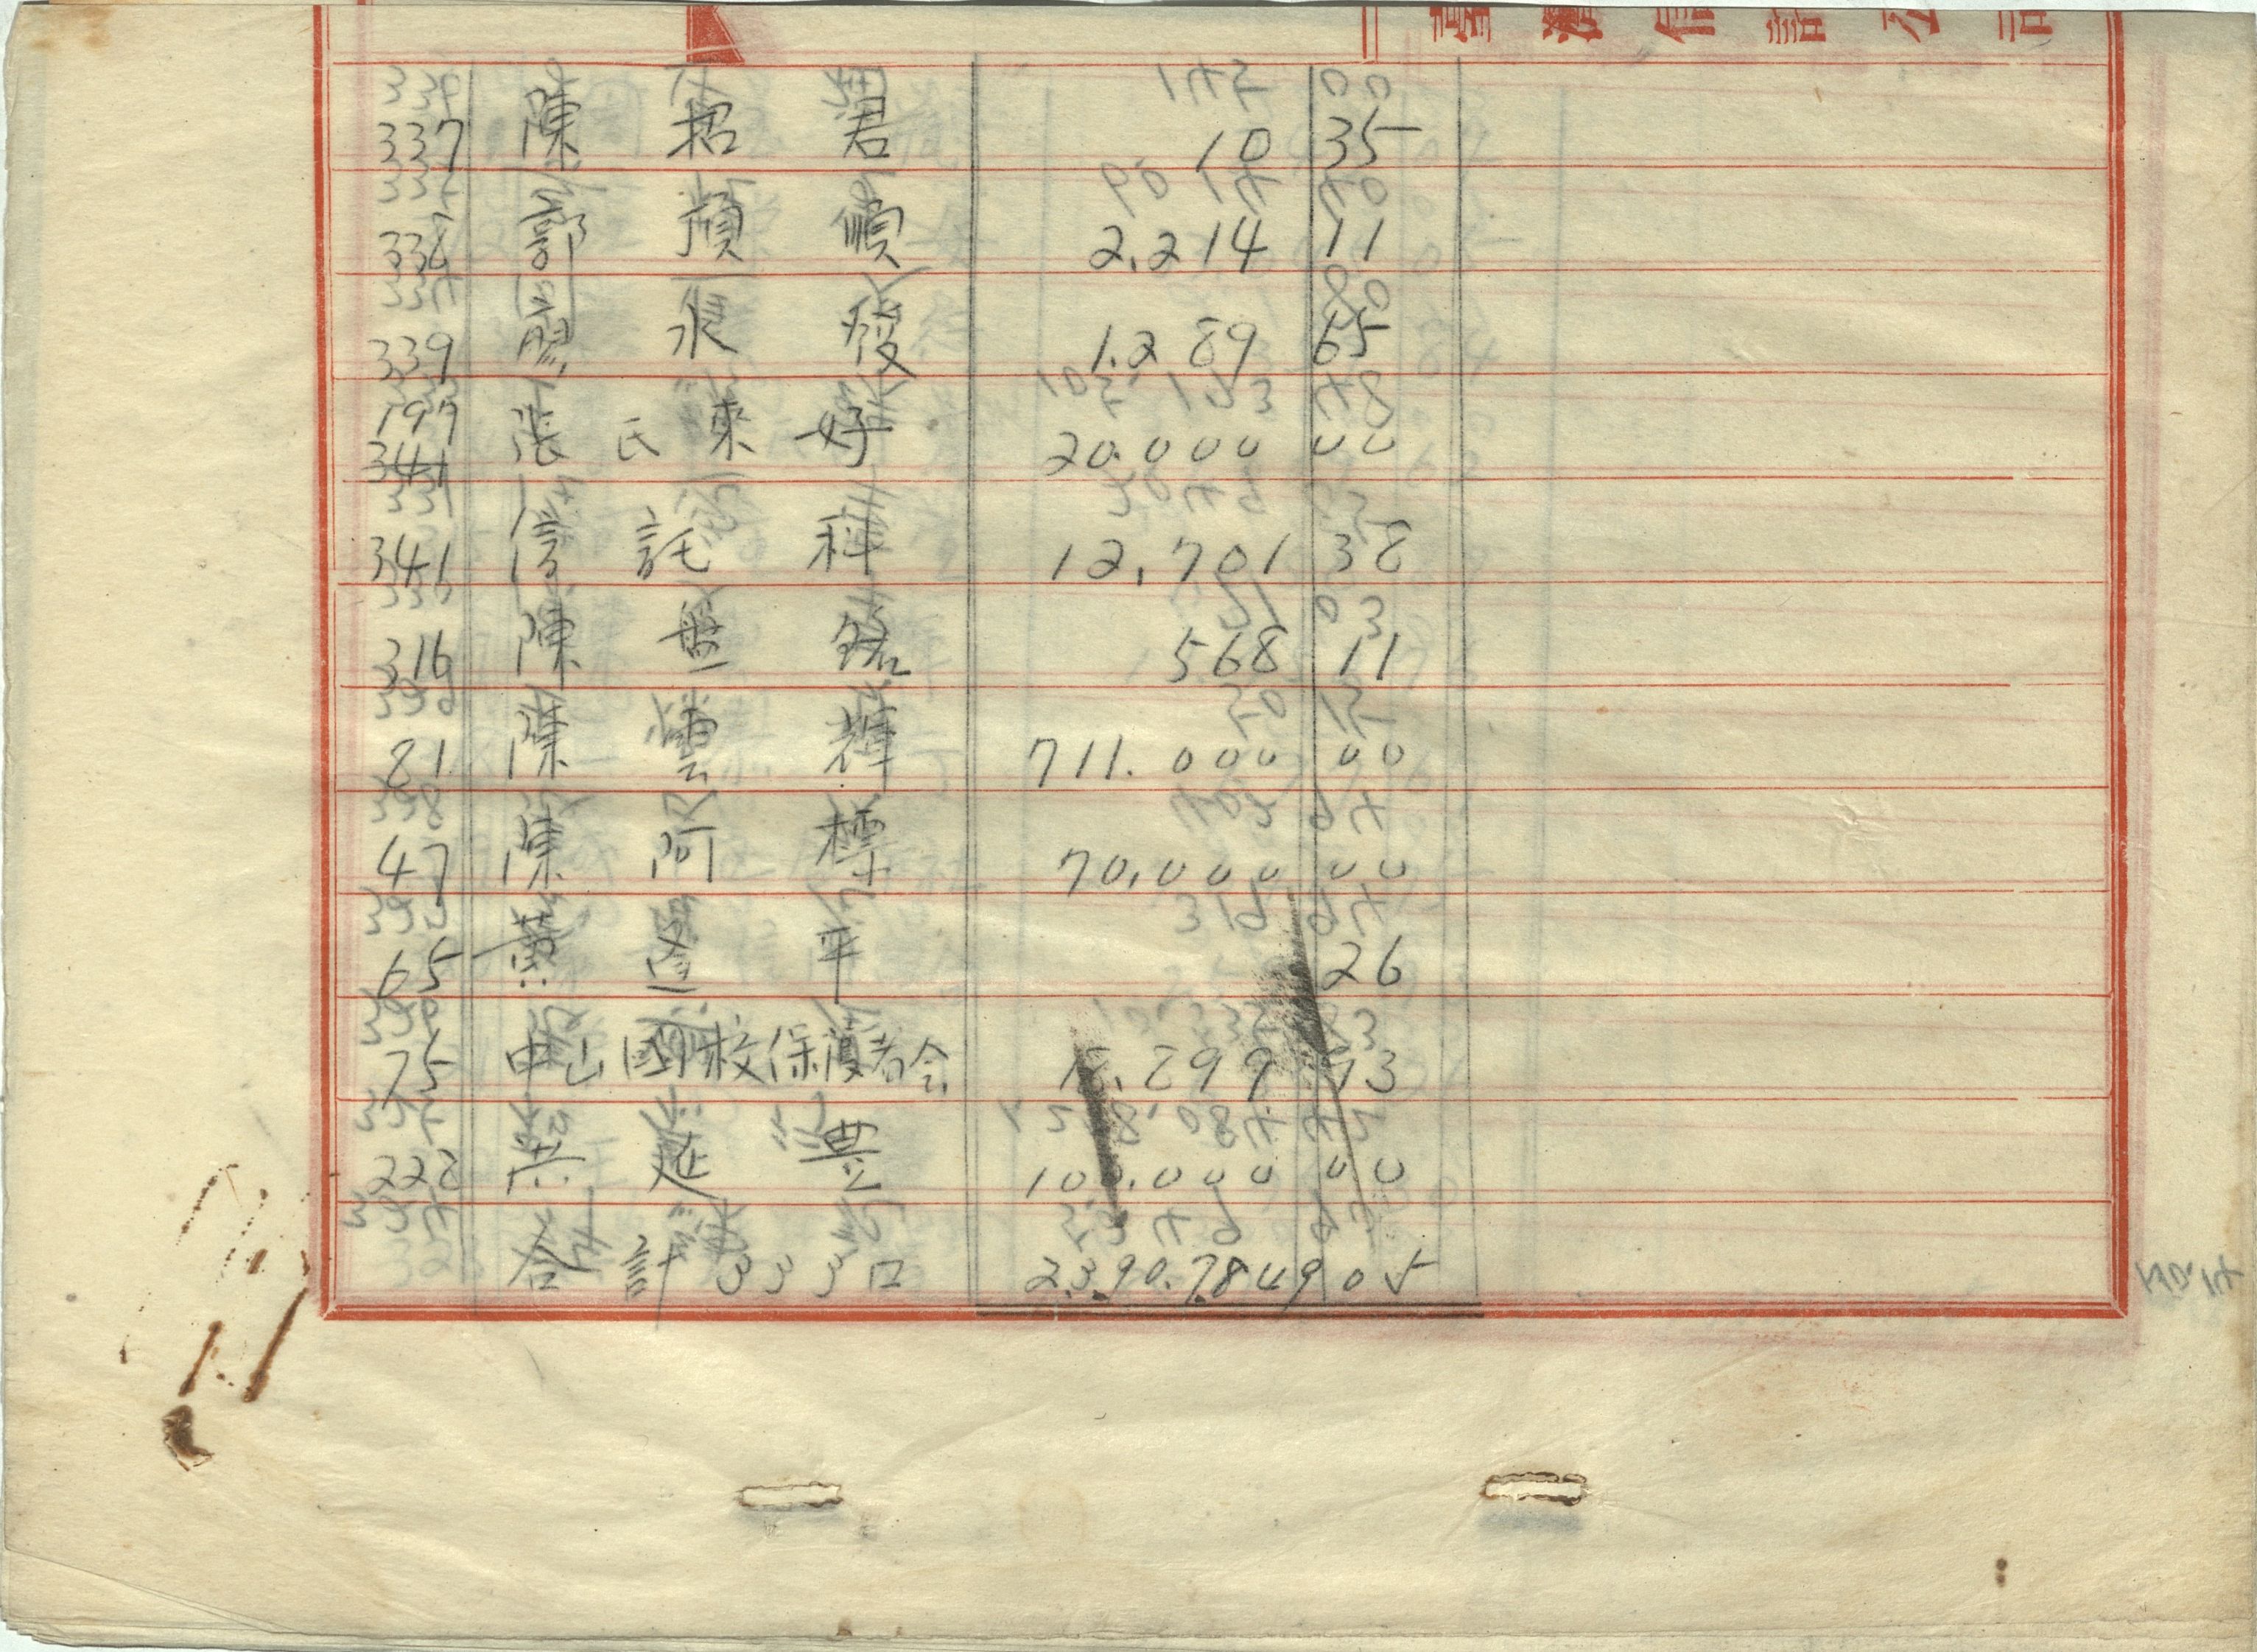 337 陳招君 10 35
336 郭頂順 2,214 11
339 廖永發 1.289 65
197 341 張氏來好 20.000 00
341 信託科 12,701 38
316 陳盤銘 568 11
81 陳雲輝 711.000 00
47 陳阿標 70,000 00
65 黃逢平 26
75 中山國校保護者会 .899 73
222 洪延豊 100.000 00
合計 333口 2.390.784 9 05